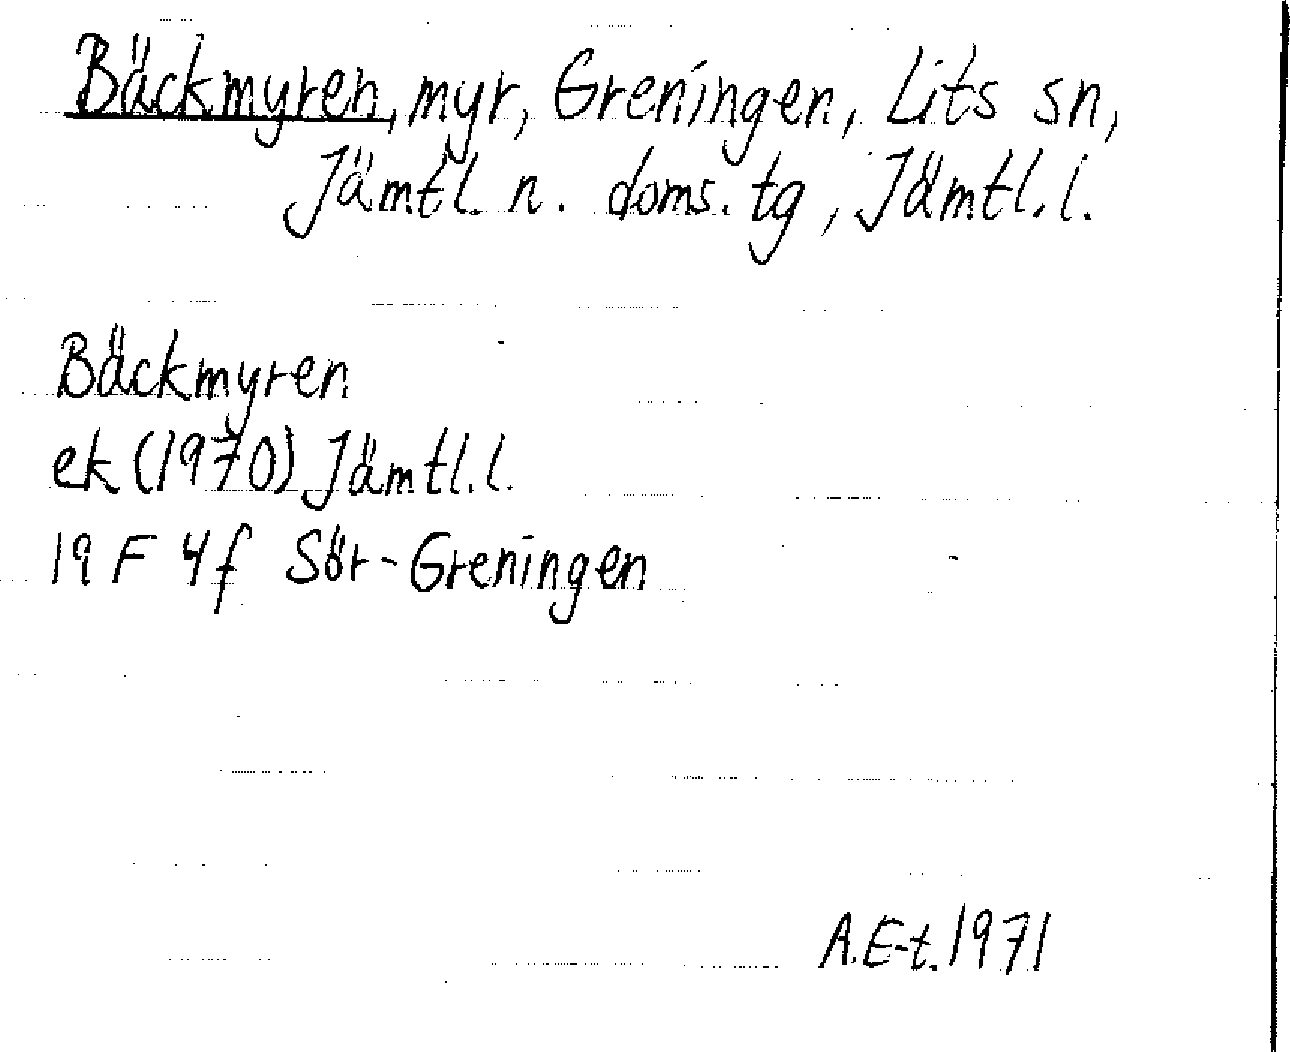 Bäckmyren, myr, Greningen, Lits sn,
Jämtl. n. doms. tg, Jämtl. l.
Bäckmyren
ek (1970) Jämtl. l.
19 F 4f Sör-Greningen
A.E-t. 1971